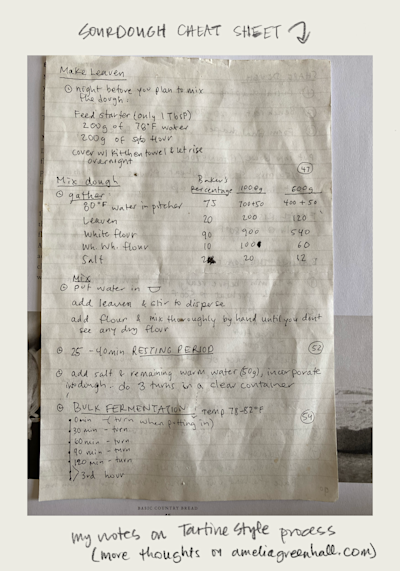 SOURDOUGH CHEAT SHEET
Make Leaven
night before you plan to mix
the dough.
Feed starter (only 1 Tbsp)
200g of 78°F water
200g of 50/50 flour
cover w/ kitchen towel & let rise
overnight
47
Mix dough Baker's percentage 1000g 600g
gather
80°F water in pitcher 75 700+50 400+50
Leaven 20 200 120
White flour 90 900 540
Wh. Wh. flour 10 100 60
Salt 2 20 12
Mix
put water in
add leaven & stir to disperse
add flour & mix thoroughly by hand until you don't
see any dry flour
25-40min RESTING PERIOD
52
add salt & remaining warm water (50g), incorporate
in dough. do 3 turns in a clear container
BULK FERMENTATION temp 78-82°F
54
0 min - (turn when putting in)
30 min - turn
60 min - turn
90 min - turn
120 min - turn
3rd hour
BASIC COUNTRY BREAD
my notes on Tartine style process
(more thoughts on ameliagreenhall.com)